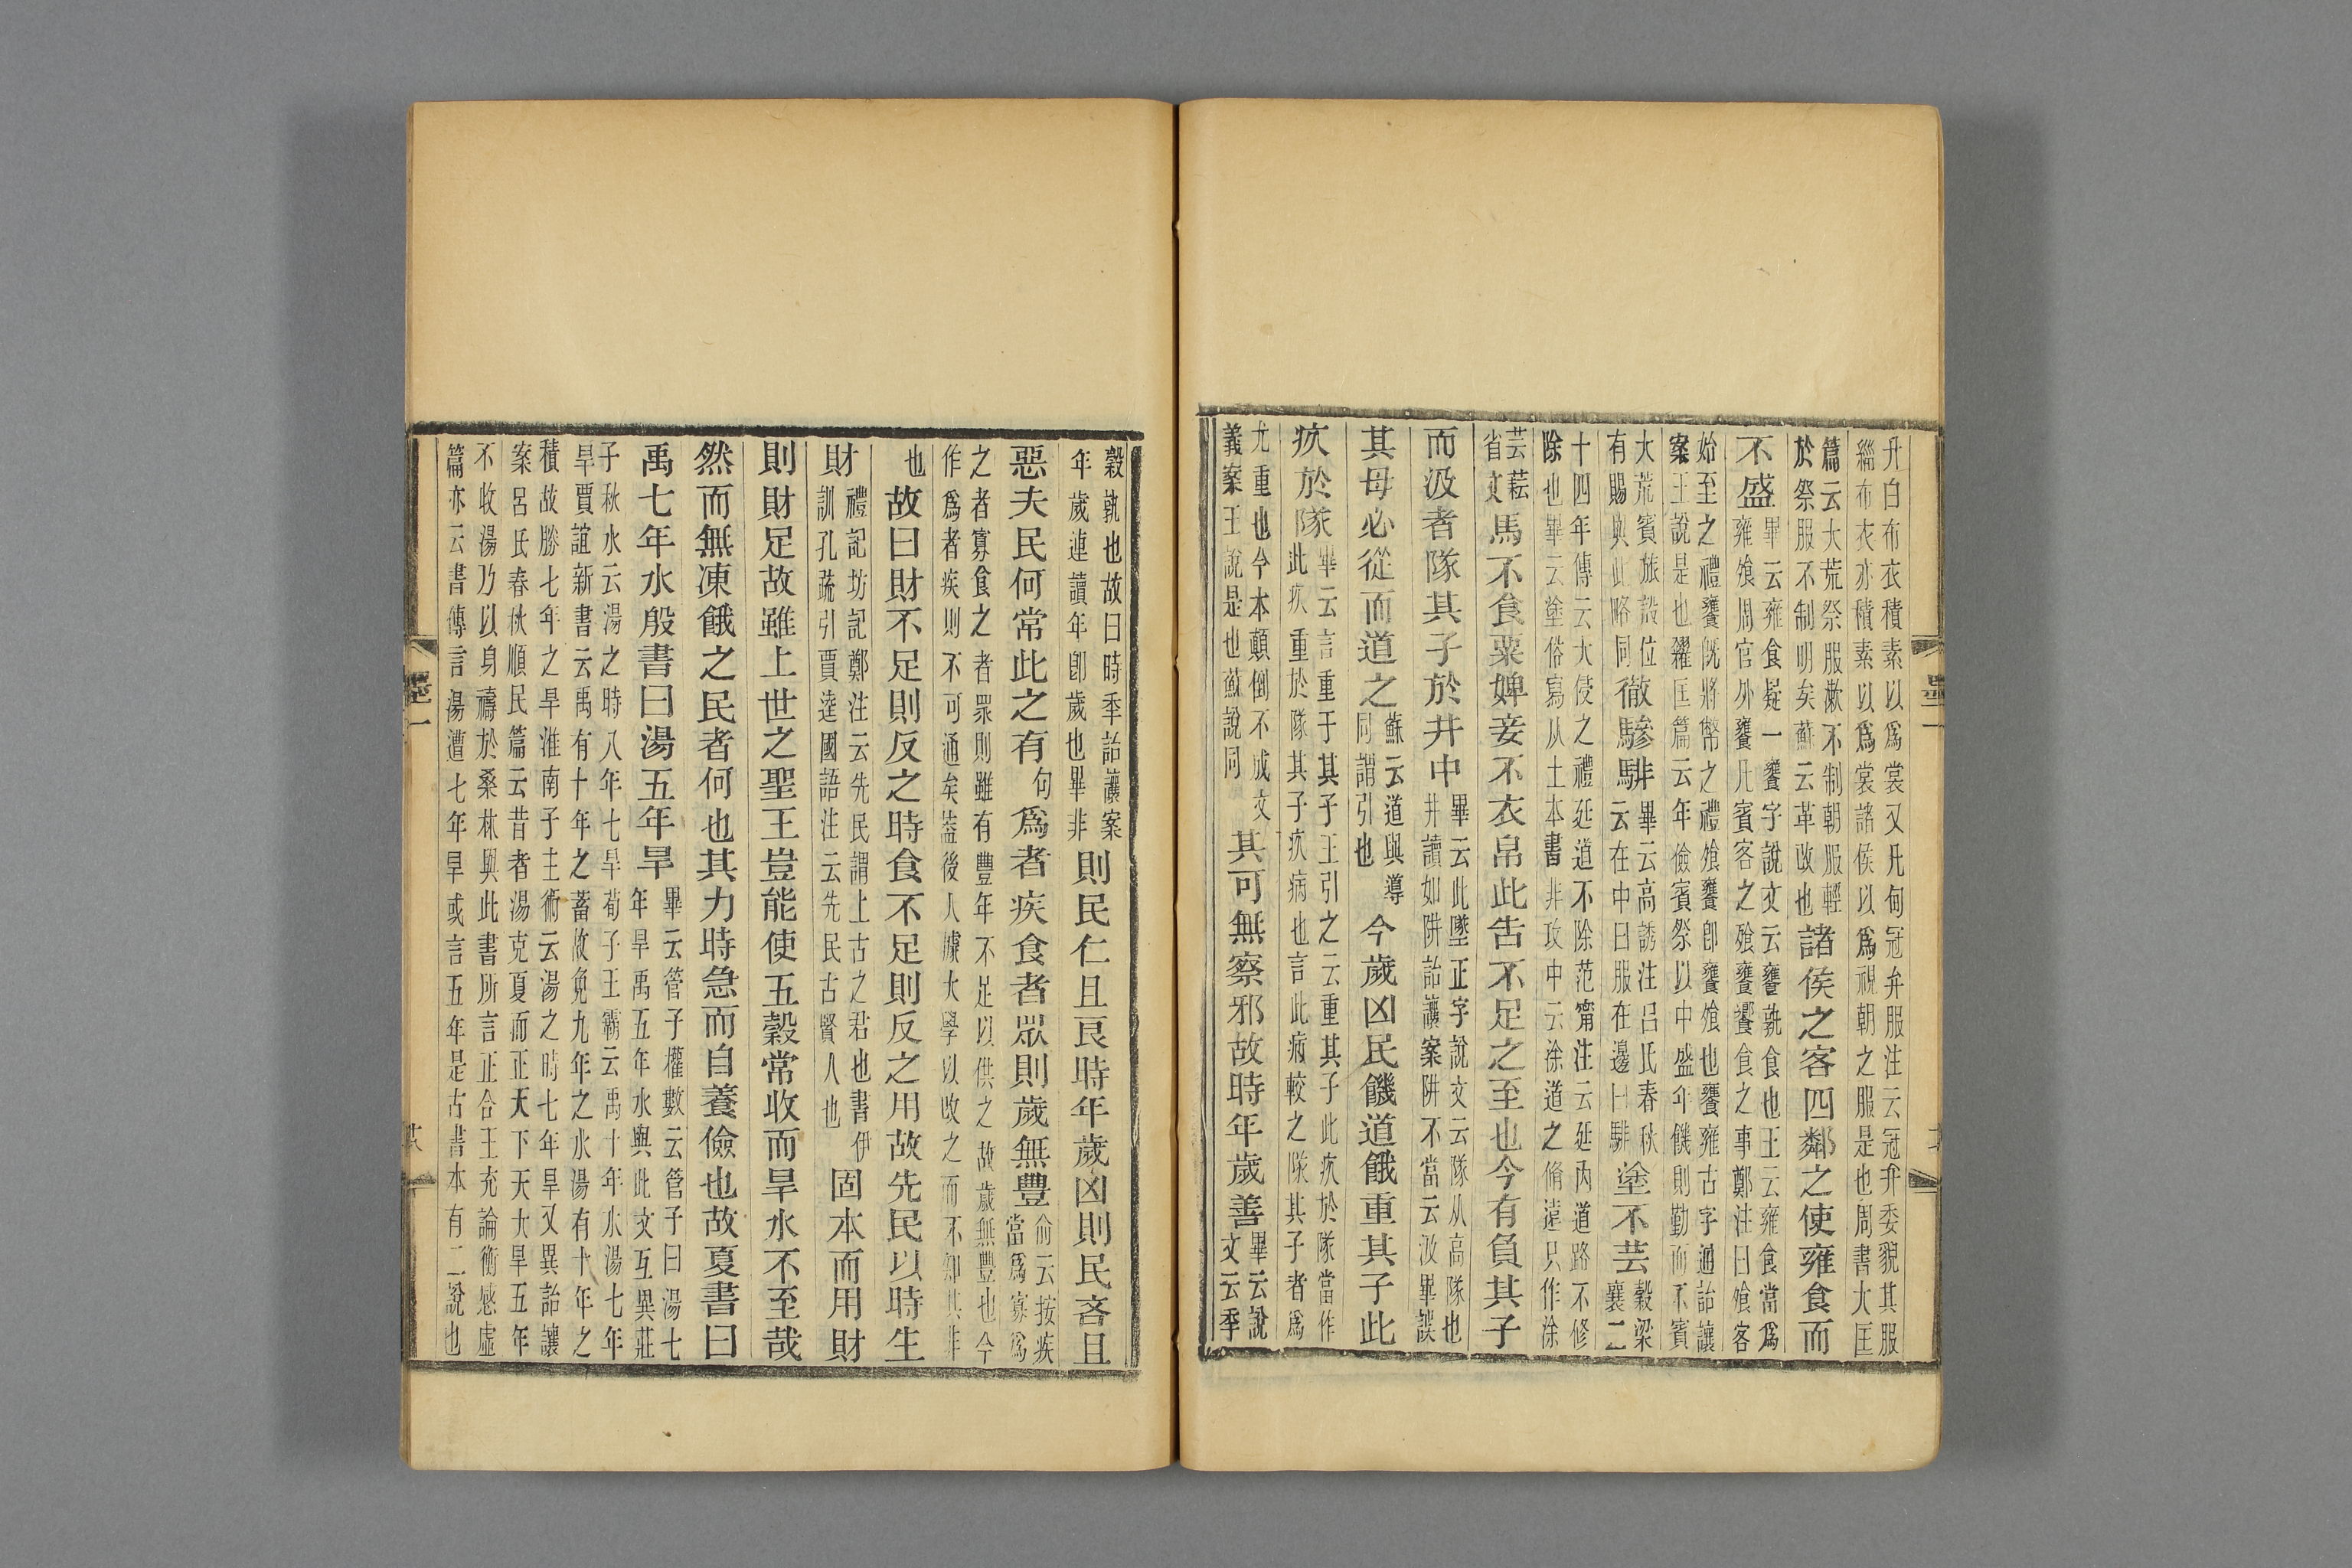 弁白布衣積素以爲裳又凡甸冠弁服注云冠弁委貌其服
緇布衣亦積素以爲裳諸侯以爲視朝之服是也周書大匡
篇云大荒祭服漱不制朝服輕
於祭服不制明矣蘇云革改也
諸侯之客四鄰之使雍食而
不盛
畢云雍食疑一饔字說文云饔孰食也王云雍食當爲
雍飧周官外饔凡賓客之飧饔饗食之事鄭注曰飧客
始至之禮饔旣將幣之禮飧饔卽饔飧也饔雍古字通詒讓
案王說是也糴匡篇云年儉賓祭以中盛年饑則勤而不賓
大荒賓旅設位
有賜與此略同
徹驂騑
畢云高誘注呂氏春秋
云在中曰服在邊曰騑
塗不芸
穀梁
襄二
十四年傳云大侵之禮廷道不除范甯注云廷內道路不修
除也畢云塗俗寫从土本書非攻中云涂道之脩遠只作涂
芸䕼
省文
馬不食粟婢妾不衣帛此告不足之至也今有負其子
而汲者隊其子於井中
畢云此墜正字說文云隊从高隊也
井讀如阱詒讓案阱不當云汲畢誤
其母必從而道之
蘇云道與導
同謂引也
今歲凶民饑道餓重其子此
疚於隊
畢云言重于其子王引之云重其子此疚於隊當作
此疚重於隊其子疚病也言此病較之隊其子者爲
尤重也今本顛倒不成文
義案王說是也蘇說同
其可無察邪故時年歲善
畢云說
文云季
穀孰也故曰時季詒讓案
年歲連讀年卽歲也畢非
則民仁且良時年歲凶則民吝且
惡夫民何常此之有
句
爲者疾食者眾則歲無豐
俞云按疾
當爲寡爲
之者寡食之者眾則雖有豐年不足以供之故歲無豐也今
作爲者疾則不可通矣蓋後人據大學以改之而不知其非
也
故曰財不足則反之時食不足則反之用故先民以時生
財
禮記坊記鄭注云先民謂上古之君也書伊
訓孔疏引賈逵國語注云先民古賢人也
固本而用財
則財足故雖上世之聖王豈能使五穀常收而旱水不至哉
然而無凍餓之民者何也其力時急而自養儉也故夏書曰
禹七年水殷書曰湯五年旱
畢云管子權數云管子曰湯七
年旱禹五年水與此文互異莊
子秋水云湯之時八年七旱荀子王霸云禹十年水湯七年
旱賈誼新書云禹有十年之蓄故免九年之水湯有十年之
積故勝七年之旱淮南子主術云湯之時七年旱又異詒讓
案呂氏春秋順民篇云昔者湯克夏而正天下天大旱五年
不收湯乃以身禱於桑林與此書所言正合王充論衡感虛
篇亦云書傳言湯遭七年旱或言五年是古書本有二說也
墨一
墨一